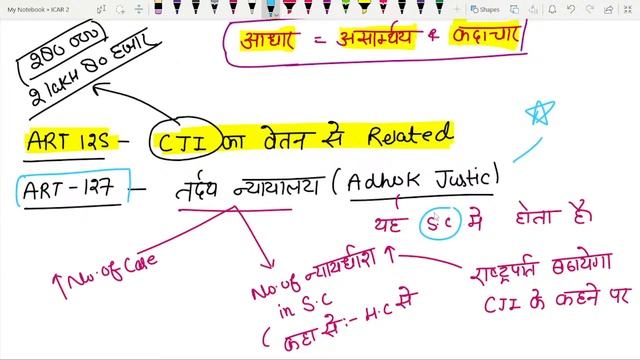 My Notebook › ICAR 2
आधार = असामर्थ्य & कदाचार
280 000
2 lakh 80 हजार
ART 125 - CJI का वेतन से Related
ART - 127 - तर्दथ न्यायालय (Adhok Justic)
यह S.C में होता है।
↑ No. of Case
No. of न्यायधीश ↑
in S.C
( कहा से :- H.C से
राष्ट्रपति बढायेगा
CJI के कहने पर